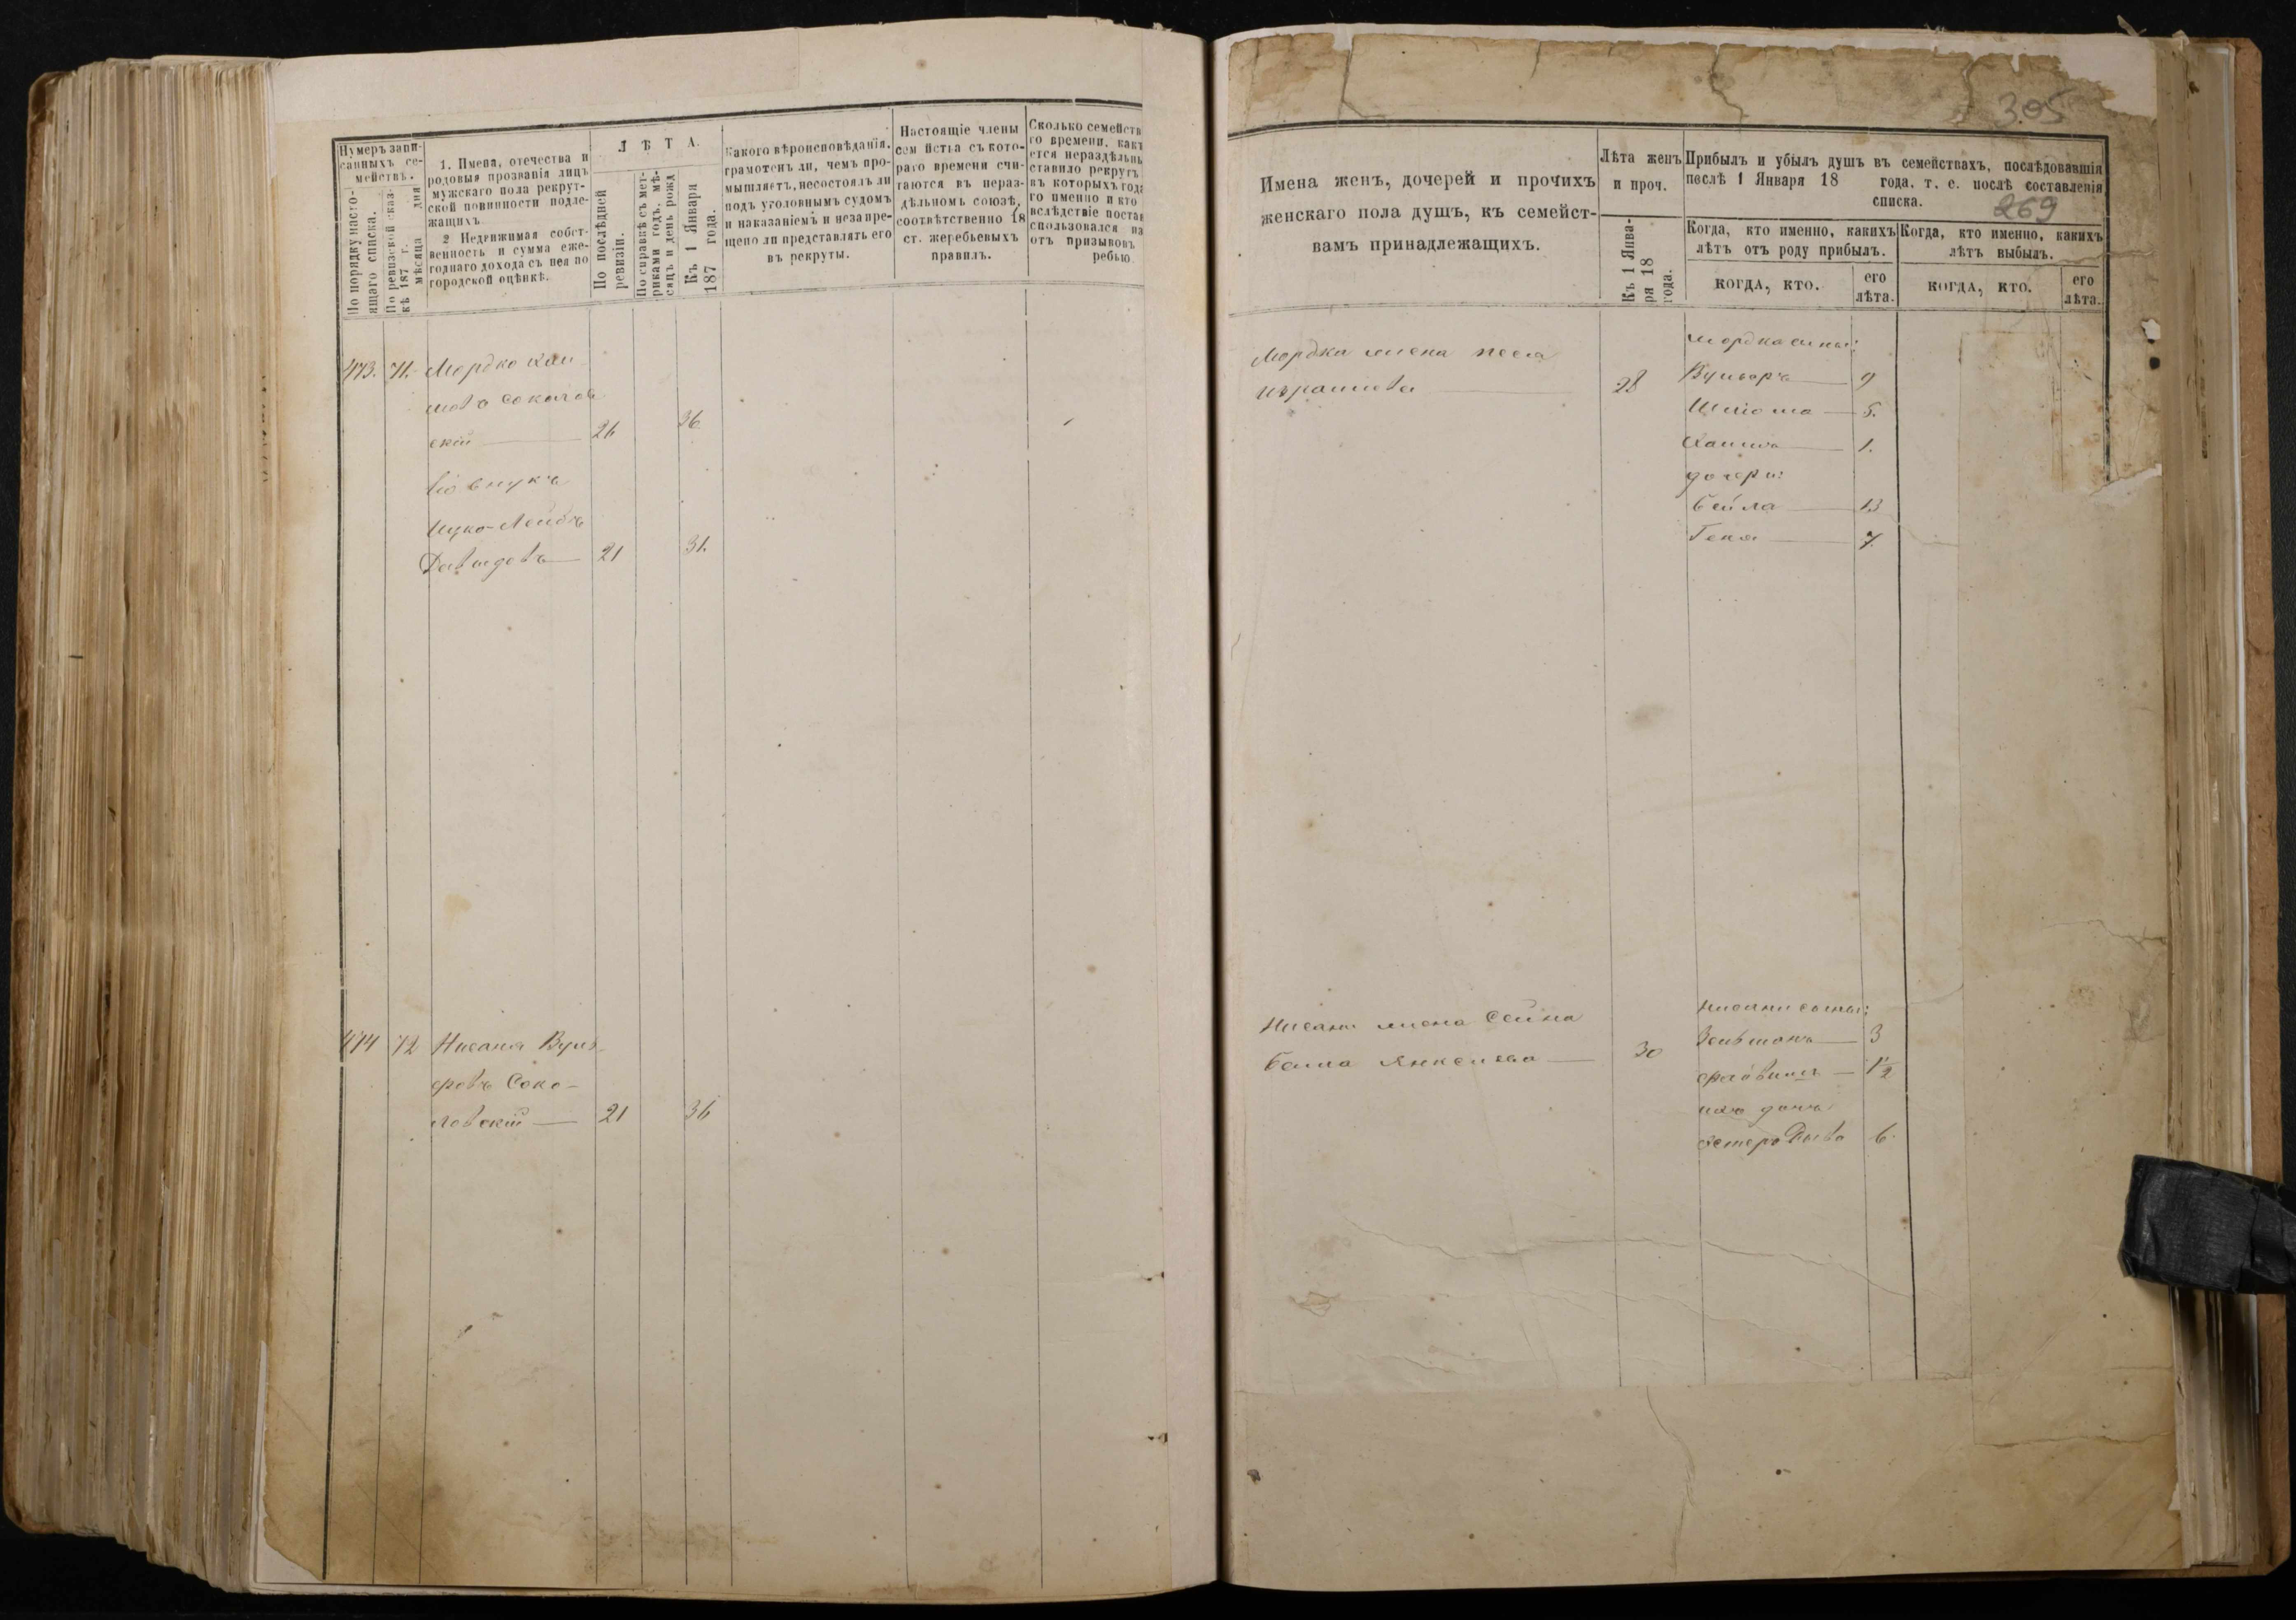 Нумеръ запи-
санныхъ се-
мействъ.
По порядку насто-
ящаго списка.
По ревизской сказ-
кѣ 187 г. мѣсяца дня
1. Имена, отечества и
родовыя прозванія лицъ
мужскаго пола рекрут-
ской повинности подле-
жащихъ
2 Недвижимая собст-
венность и сумма еже-
годнаго дохода съ нея по
городской оцѣнкѣ.
ЛѢТА.
По послѣдней
ревизіи.
По справкѣ съ мет-
риками годъ, мѣ-
сяцъ и день рожд
Къ 1 Января
187 года.
Какого вѣроисповѣданія.
грамотенъ ли, чемъ про-
мышляетъ, несостоялъ ли
подъ уголовнымъ судомъ
и наказаніемъ и незапре-
щено ли представлять его
въ рекруты.
Настоящіе члены
сем йства съ кото-
раго времени счи-
таются въ нераз-
дѣльномъ союзѣ,
соотвѣтственно 18
ст. жеребьевыхъ
правилъ.
Сколько семейств
го времени, какъ
ется нераздѣльн
ставило рекрутъ
въ которыхъ год
го именно и кто
вслѣдствіе постав
спользовался на
отъ призывовъ
ребью
473. 71. Мордко Хаи
мовъ Соколов
скій 26 36
Его внукъ
Ицко-Лейбъ
Давидовъ 21 31.
474 72 Нисанъ Вуль
фовъ Соко-
ловскій 21 36
305
269
Имена женъ, дочерей и прочихъ
женскаго пола душъ, къ семейст-
вамъ принадлежащихъ.
Лѣта женъ
и проч.
Къ 1 Янва-
ря 18
года.
Прибылъ и убылъ душъ въ семействахъ, послѣдовавшія
послѣ 1 Января 18 года. т. е. послѣ составленія
списка.
Когда, кто именно, какихъ
лѣтъ отъ роду прибылъ.
Когда, кто именно, какихъ
лѣтъ выбылъ.
КОГДА, КТО.
его
лѣта.
КОГДА, КТО.
его
лѣта.
Мордка жена Песя
Израилева 28
Мордка сыны:
Вульфъ 9
Шліома 5.
Хаимъ 1.
дочери:
Бейла 13
Геня 7.
Нисана жена Сейна
Баша Янкелева 30
Нисана сыны:
Зельманъ 3
1 1/2
ихъ дочь
Эстеръ Рыва 6.